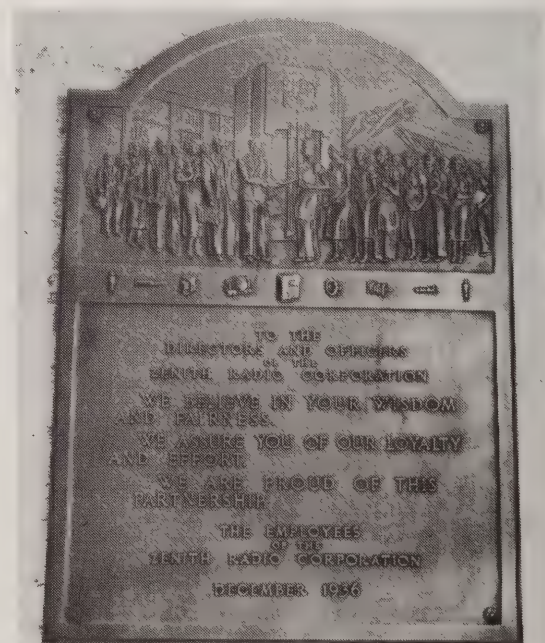 TO THE
DIRECTORS AND OFFICERS
OF THE
ZENITH RADIO CORPORATION
WE BELIEVE IN YOUR WISDOM
AND FAIRNESS.
WE ASSURE YOU OF OUR LOYALTY
AND EFFORT.
WE ARE PROUD OF THIS
PARTNERSHIP.
THE EMPLOYEES
OF THE
ZENITH RADIO CORPORATION
DECEMBER 1936